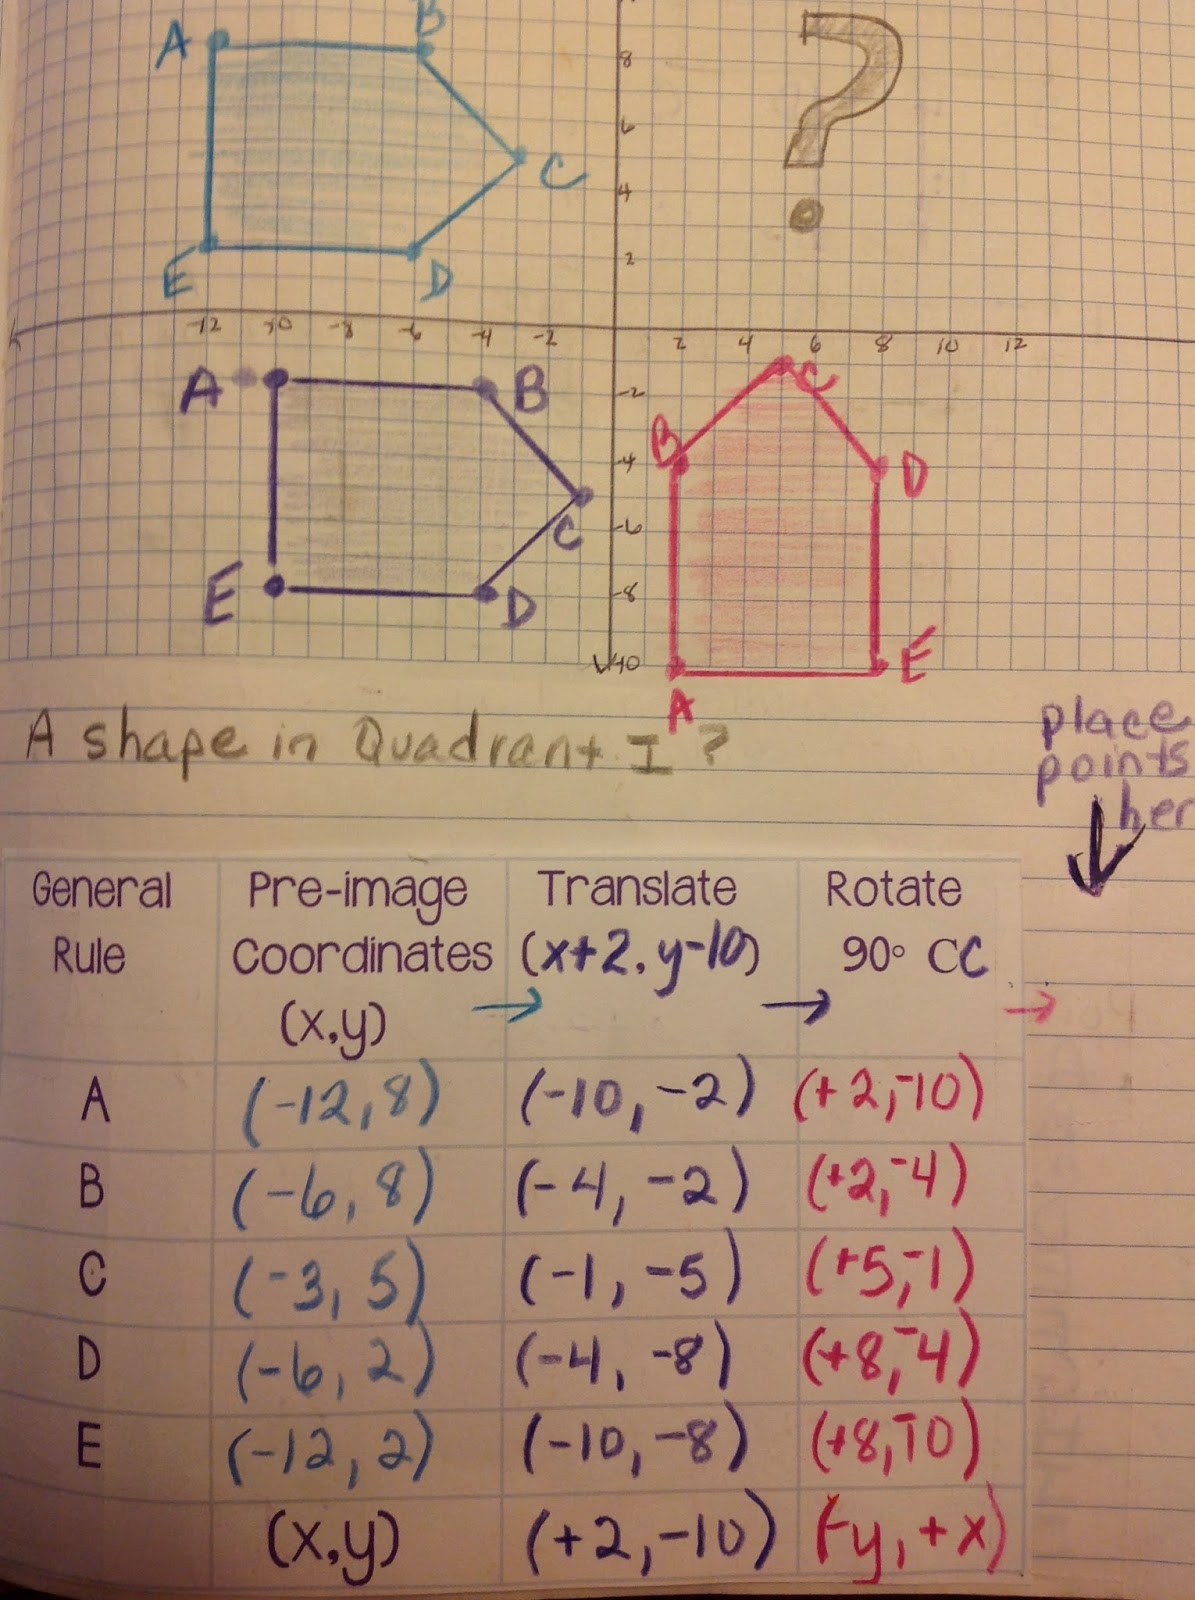 A B
8
6
C
4
2
E D
-12 -10 -8 -6 -4 -2 2 4 6 8 10 12
A B C
-2
B -4 D
C -6
E D -8
-10 E
A
A shape in Quadrant I?
place
points
her
General Rule
Pre-image Coordinates (x,y)
Translate (x+2, y-10)
Rotate 90° CC
A (-12, 8) (-10, -2) (+2, -10)
B (-6, 8) (-4, -2) (+2, -4)
C (-3, 5) (-1, -5) (+5, -1)
D (-6, 2) (-4, -8) (+8, -4)
E (-12, 2) (-10, -8) (+8, -10)
(x,y) (+2, -10) (-y, +x)